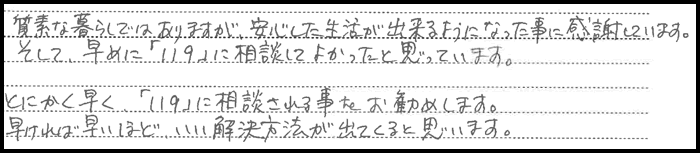 質素な暮らしではありますが、安心した生活が出来るようになった事に感謝しています。
そして、早めに「119」に相談してよかったと思っています。
とにかく早く、「119」に相談される事をお勧めします。
早ければ早いほど、いい解決方法が出てくると思います。